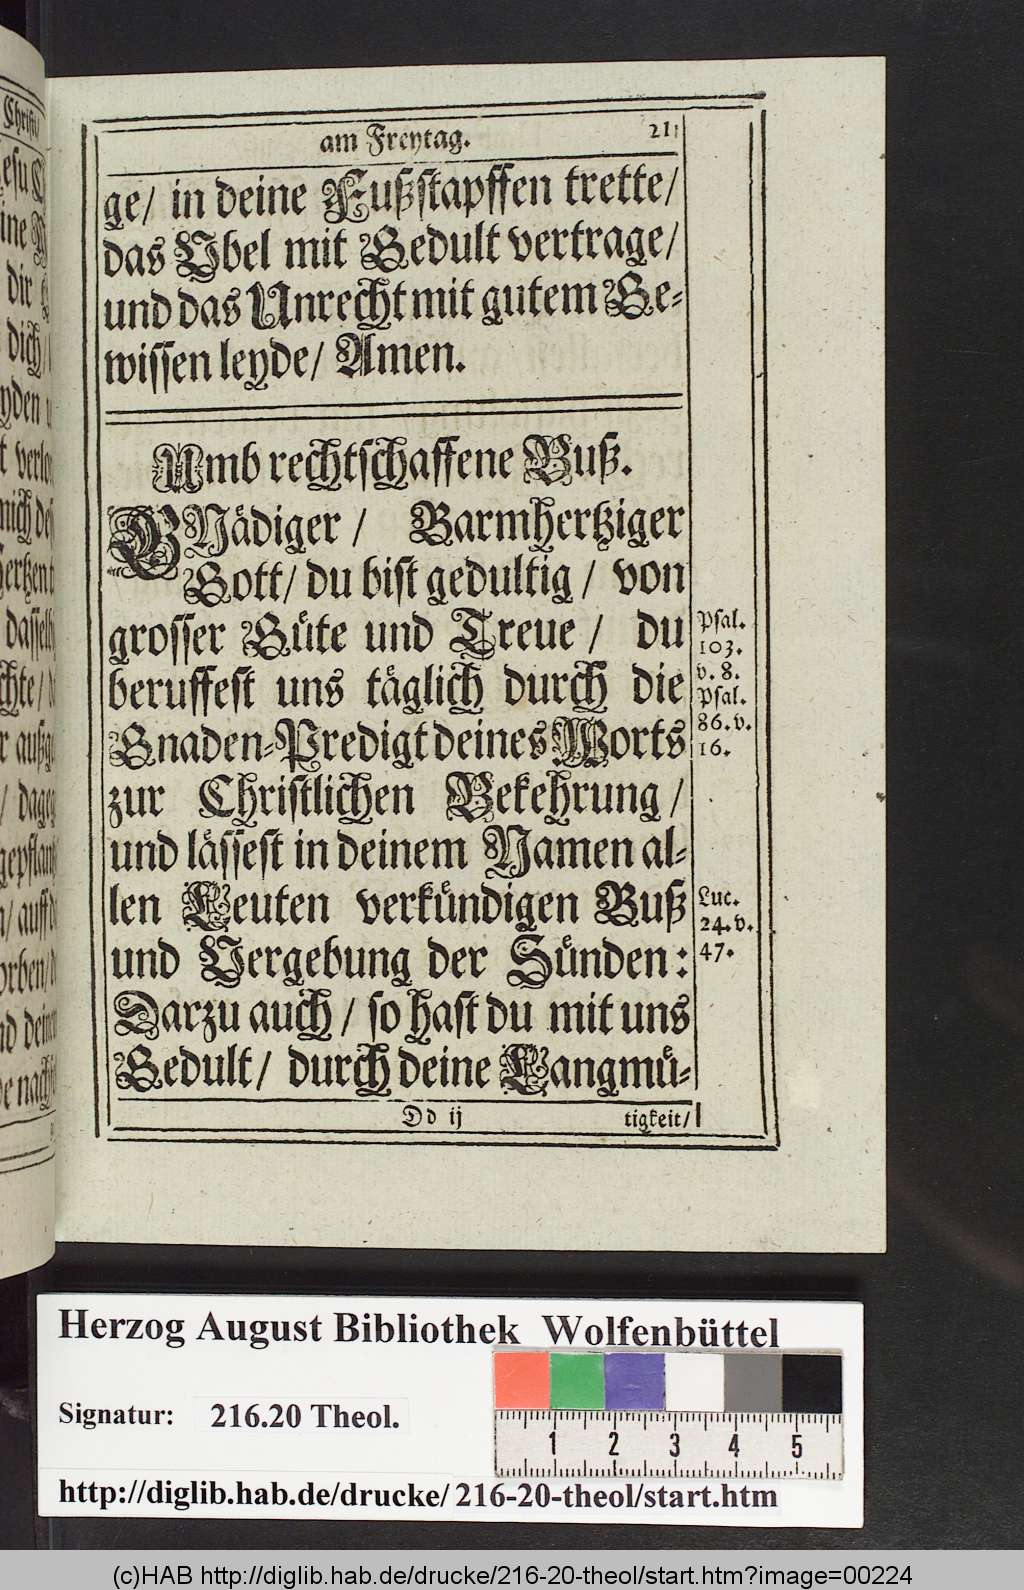 am Freytag.
211
ge/ in deine Fußstapffen trette/
das Vbel mit Gedult vertrage/
und das Unrecht mit gutem Ge-
wissen leyde/ Amen.
Umb rechtschaffene Buß.
GNädiger / Barmhertziger
Gott/ du bist gedultig / von
grosser Güte und Treue / du
beruffest uns täglich durch die
Gnaden-Predigt deines Worts
zur Christlichen Bekehrung /
und lässest in deinem Namen al-
len Leuten verkündigen Buß
und Vergebung der Sünden:
Darzu auch / so hast du mit uns
Gedult/ durch deine Langmü-
Psal.
103.
v. 8.
Psal.
86. v.
16.
Luc.
24. v.
47.
Dd ij
tigkeit/
Herzog August Bibliothek Wolfenbüttel
Signatur: 216.20 Theol.
1 2 3 4 5
http://diglib.hab.de/drucke/216-20-theol/start.htm
(c)HAB http://diglib.hab.de/drucke/216-20-theol/start.htm?image=00224